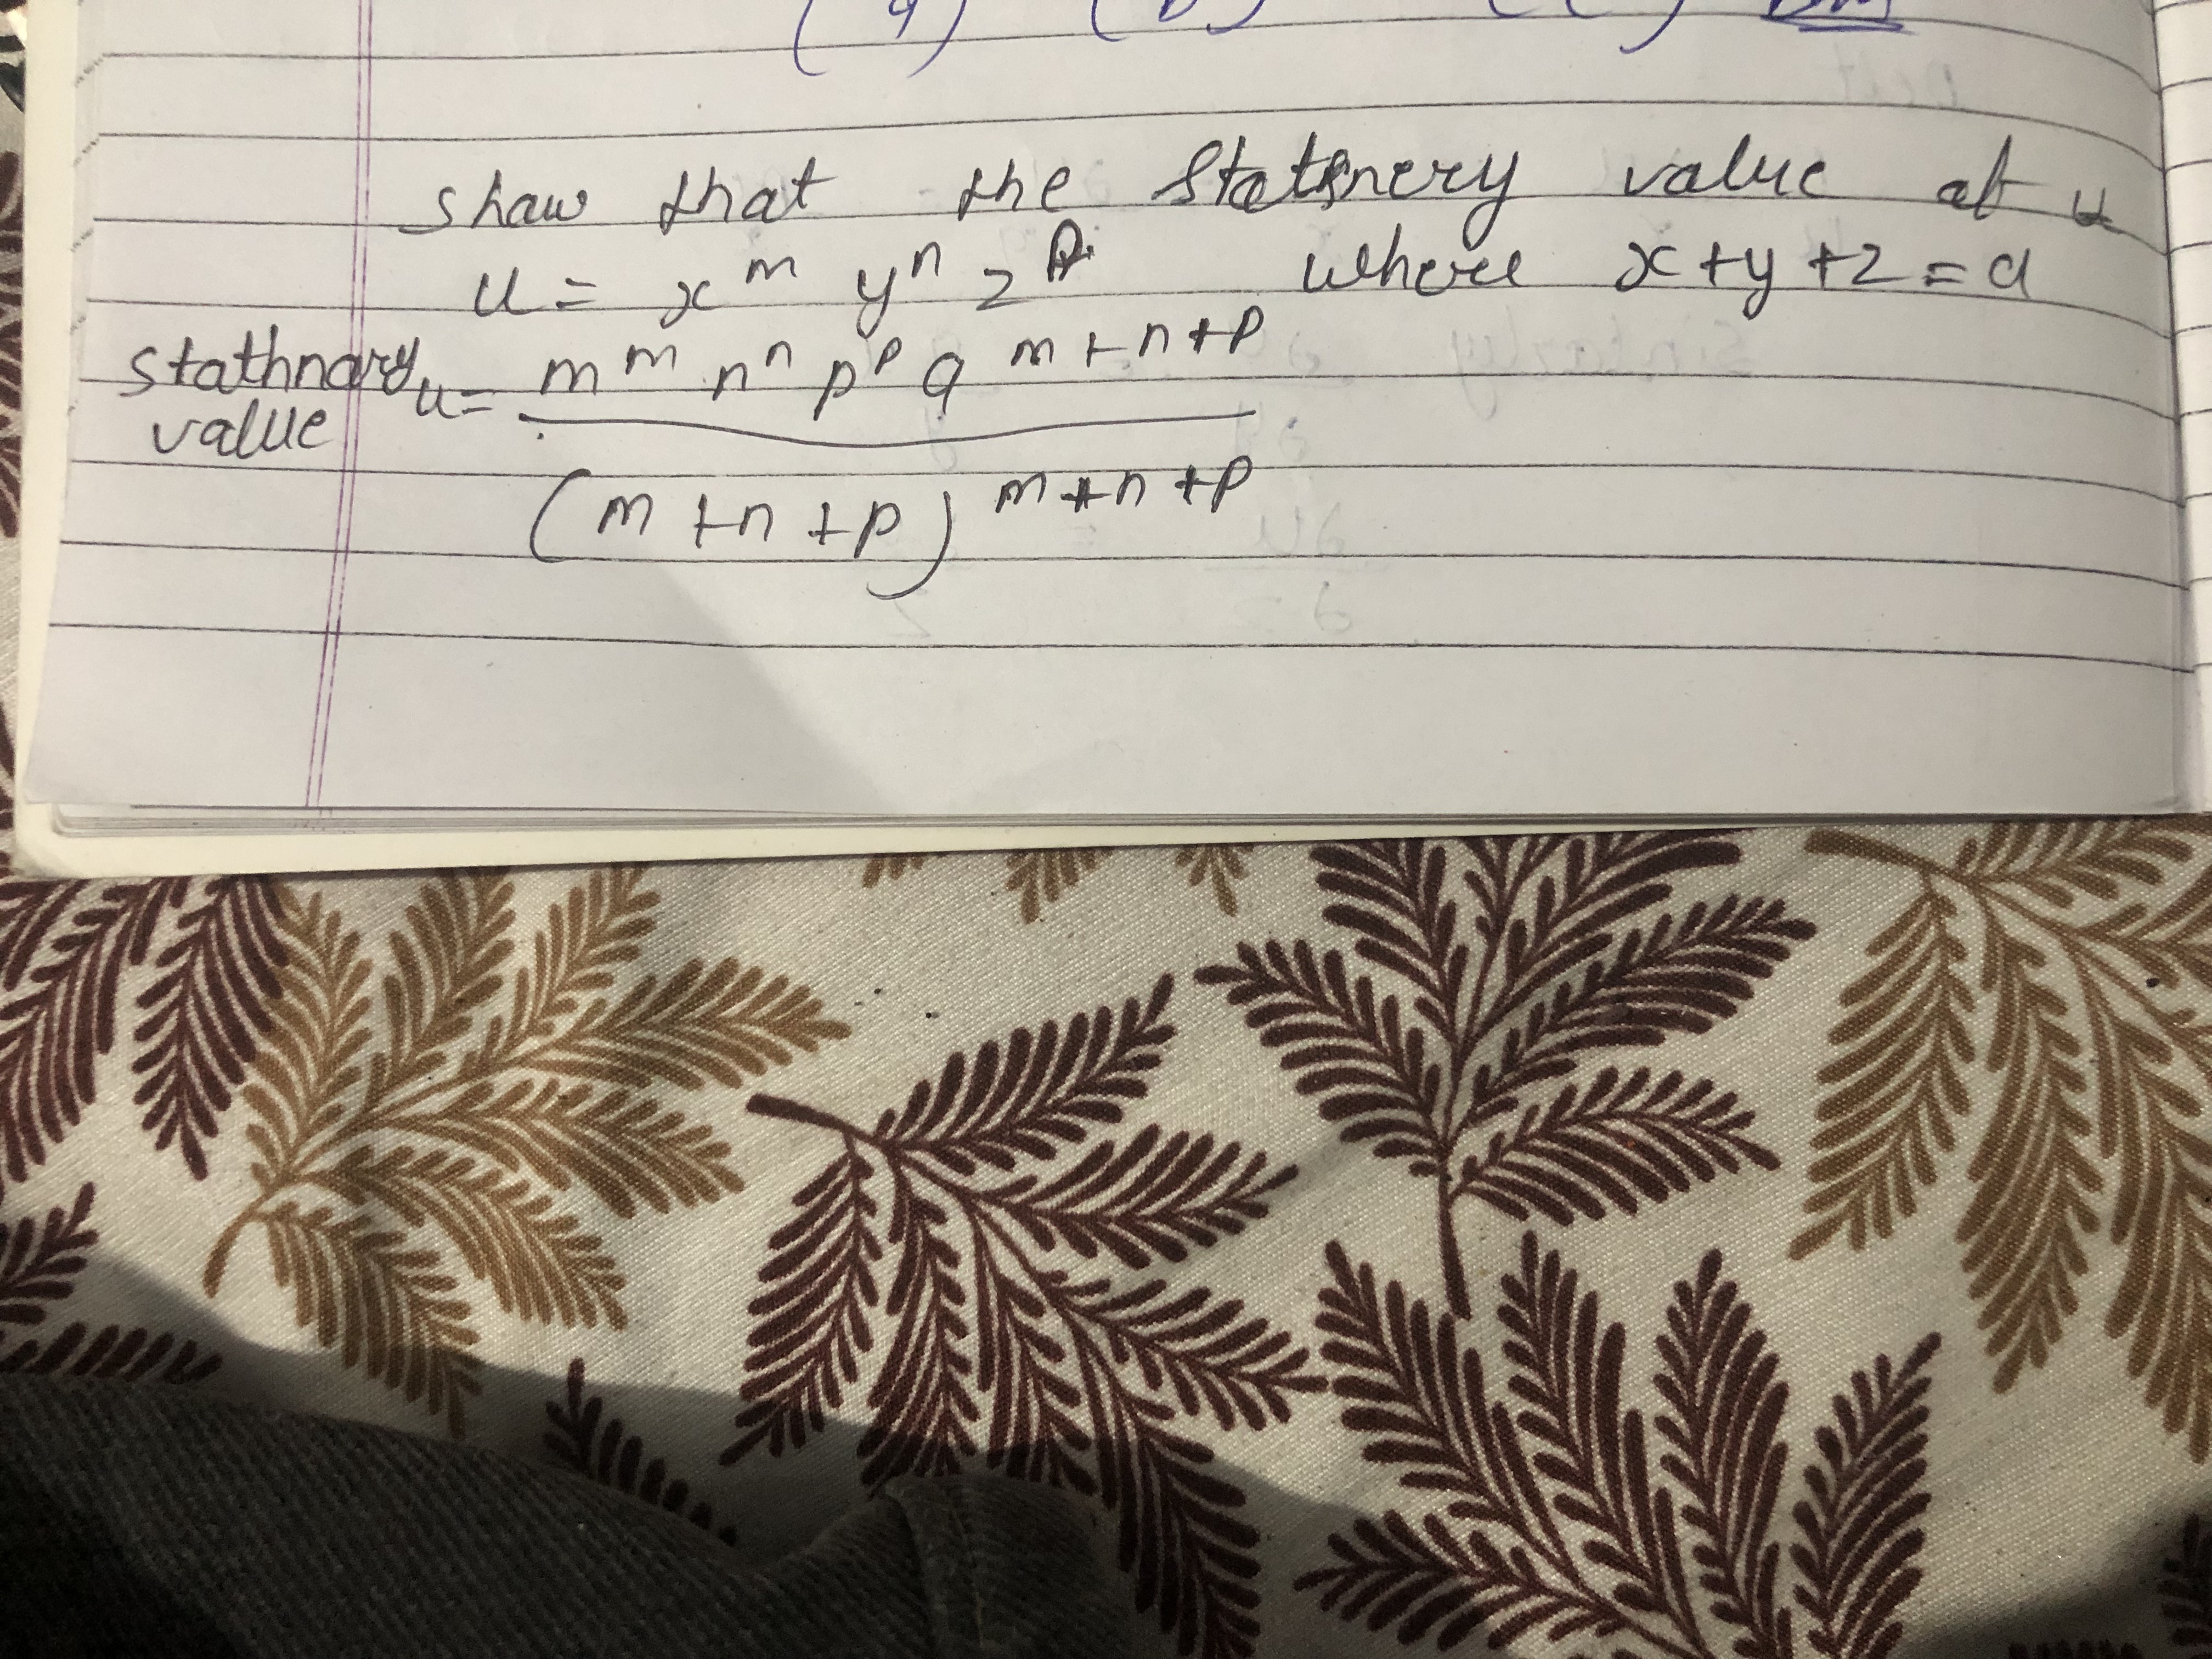 (a) (b) (c)
shaw that the Stationery value of u
u = x^m y^n z^p where x+y+z=a
Stathnary value u = m^m n^n p^p a^m+n+p
(m+n+p)^m+n+p